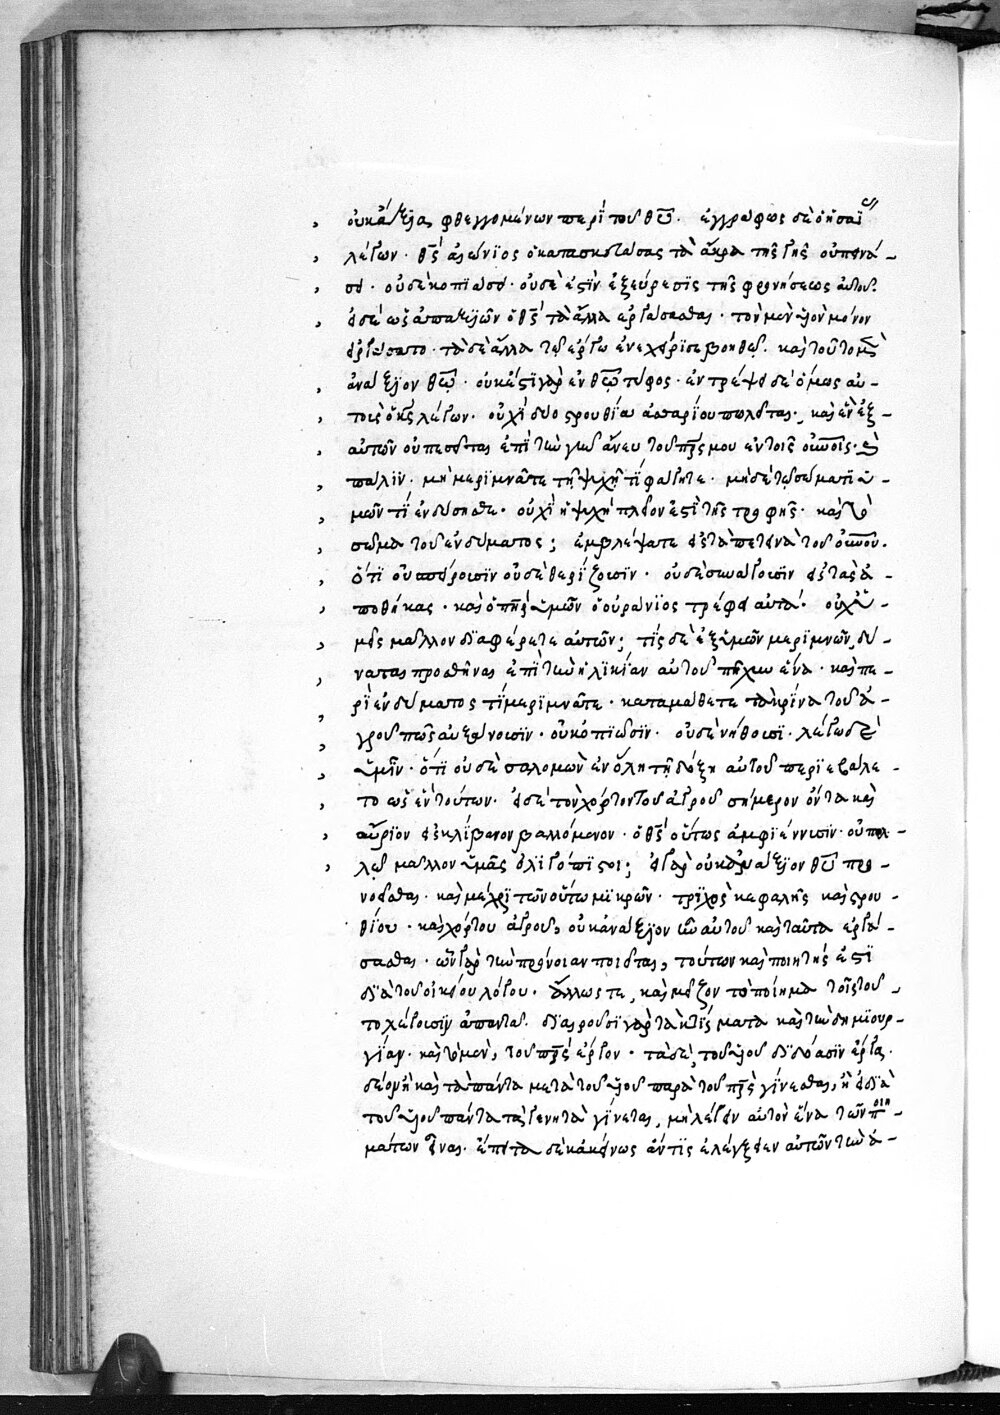 οὐκ ἄξια φθεγγομένων περὶ τοῦ θῦ. ἐγγράφως δὲ ὁ ἡσαΐ
λέγων· θς αἰώνιος ὁ κατασκευάσας τὰ ἄκρα τῆς γῆς οὐ πεινά-
σει· οὐδὲ κοπιάσει· οὐδὲ ἔστιν ἐξεύρεσις τῆς φρονήσεως αὐτοῦ.
εἰ δὲ ὡς ἀπαξιῶν ὁ θς τὰ ἄλλα ἐργάσασθαι· τὸν μὲν υἱὸν μόνον
εἰργάσατο· τὰ δὲ ἄλλα τῷ ἐνεχείρισε βοηθῷ. καὶ τοῦτο μὲν
ἀνάξιον θῦ· οὐκ ἔστι γὰρ ἐν θῶ τύφος· ἐντρέψει δὲ ὅμως αὐ-
τοὺς ὁ κς λέγων· οὐχὶ δύο στρουθία ἀσσαρίου πωλεῖται, καὶ ἓν ἐξ
αὐτῶν οὐ πεσεῖται ἐπὶ τὴν γῆν ἄνευ τοῦ πρς μου ἐν τοῖς οὐνοῖς· καὶ
πάλιν· μὴ μεριμνᾶτε τῇ ψυχῇ τί φάγητε· μηδὲ τῷ σώματι ὑ-
μῶν τί ἐνδύσησθε· οὐχὶ ἡ ψυχὴ πλεῖον ἐστὶ τῆς τροφῆς· καὶ τὸ
σῶμα τοῦ ἐνδύματος; ἐμβλέψατε εἰς τὰ πετεινὰ τοῦ οὐνοῦ.
ὅτι οὐ σπείρουσιν οὐδὲ θερίζουσιν· οὐδὲ συνάγουσιν εἰς τὰς ἀ-
ποθήκας· καὶ ὁ πηρ ὑμῶν ὁ οὐράνιος τρέφει αὐτά· οὐχ ὑ-
μεῖς μᾶλλον διαφέρετε αὐτῶν; τίς δὲ ἐξ ὑμῶν μεριμνῶν, δύ-
ναται προσθῆναι ἐπὶ τὴν ἡλικίαν αὐτοῦ πῆχυν ἕνα· καὶ πε-
ρὶ ἐνδύματος τί μεριμνᾶτε· καταμάθετε τὰ κρίνα τοῦ ἀ-
γροῦ πῶς αὐξάνουσιν· οὐ κοπιῶσιν· οὐδὲ νήθουσι· λέγω δὲ
ὑμῖν· ὅτι οὐδὲ σαλομὼν ἐν ὅλῃ τῇ δόξῃ αὐτοῦ περιεβάλε-
το ὡς ἓν τούτων· εἰ δὲ τὸν χόρτον τοῦ ἀγροῦ σήμερον ὄντα καὶ
αὔριον εἰς κλίβανον βαλλόμενον· ὁ θς οὕτως ἀμφιέννυσιν· οὐ πολ-
λῷ μᾶλλον ὑμᾶς ὀλιγόπιστοι; εἰ γὰρ οὐκ ἀνάξιον θῦ προ-
νοεῖσθαι· καὶ μέχρι τῶν οὕτω μικρῶν· τριχὸς κεφαλῆς καὶ στρου-
θίου· καὶ χόρτου ἀγροῦ, οὐκ ἀνάξιον ἦν αὐτοῦ καὶ ταῦτα ἐργά-
σασθαι· ὧν γὰρ τὴν πρόνοιαν ποιεῖται, τούτων καὶ ποιητής ἐστι
διὰ τοῦ οἰκείου λόγου. ἄλλως τε, καὶ μεῖζον τὸ ποίημα τοῖς τοῦ-
το λέγουσιν ἀπαντᾷ. διαιροῦσι γὰρ τὰ κτίσματα καὶ τὴν δημιουρ-
γίαν· καὶ τὸ μὲν, τοῦ πρς ἔργον· τὰ δὲ, τοῦ υἱοῦ διδόασιν ἔργα.
δέον ἢ καὶ τὰ πάντα μετὰ τοῦ υἱοῦ παρὰ τοῦ πρς γίνεσθαι, ἢ εἰ διὰ
τοῦ υἱοῦ πάντα τὰ γενητὰ γίνεται, μὴ λέγειν αὐτὸν ἕνα τῶν ποιη-
μάτων εἶναι. ἔπειτα δὲ κἀκείνως ἄν τις ἐλέγξειεν αὐτῶν τὴν ἀ-